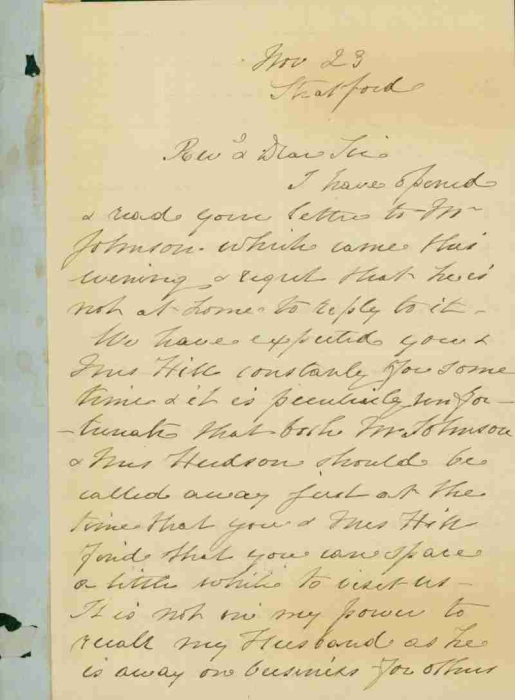 Nov 23
Stratford
Revd & Dear Sir
I have opened
& read your letter to Mr
Johnson which came this
evening & regret that he is
not at home to reply to it -
We have expected you &
Mrs Hill constantly for some
time & it is peculiarly unfor-
-tunate that both Mr Johnson
& Mrs Hudson should be
called away just at the
time that you & Mrs Hill
find that you can space
a little while to visit us -
It is not in my power to
recall my Husband as he
is away on business for others